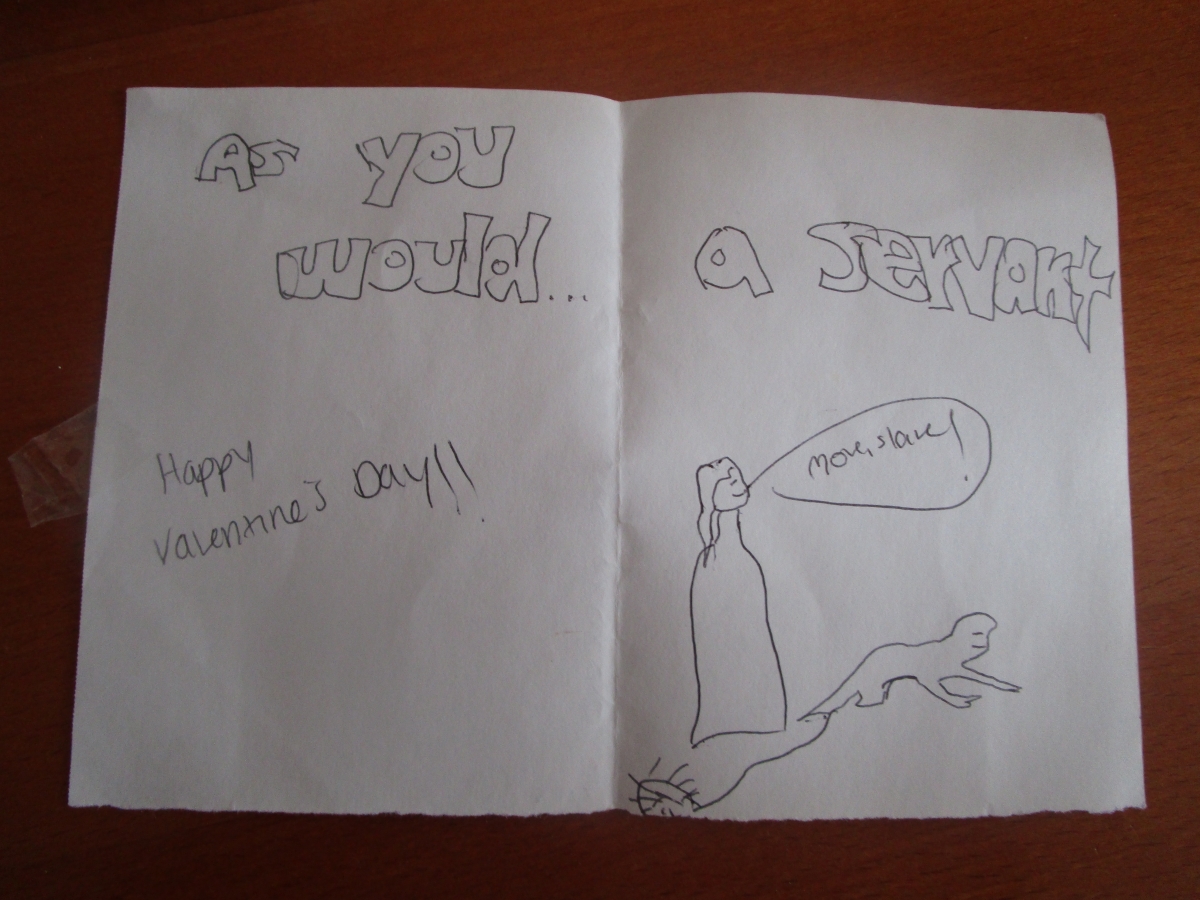 As you
would...
Happy
Valentine's Day!!
a servant
Move, slave!